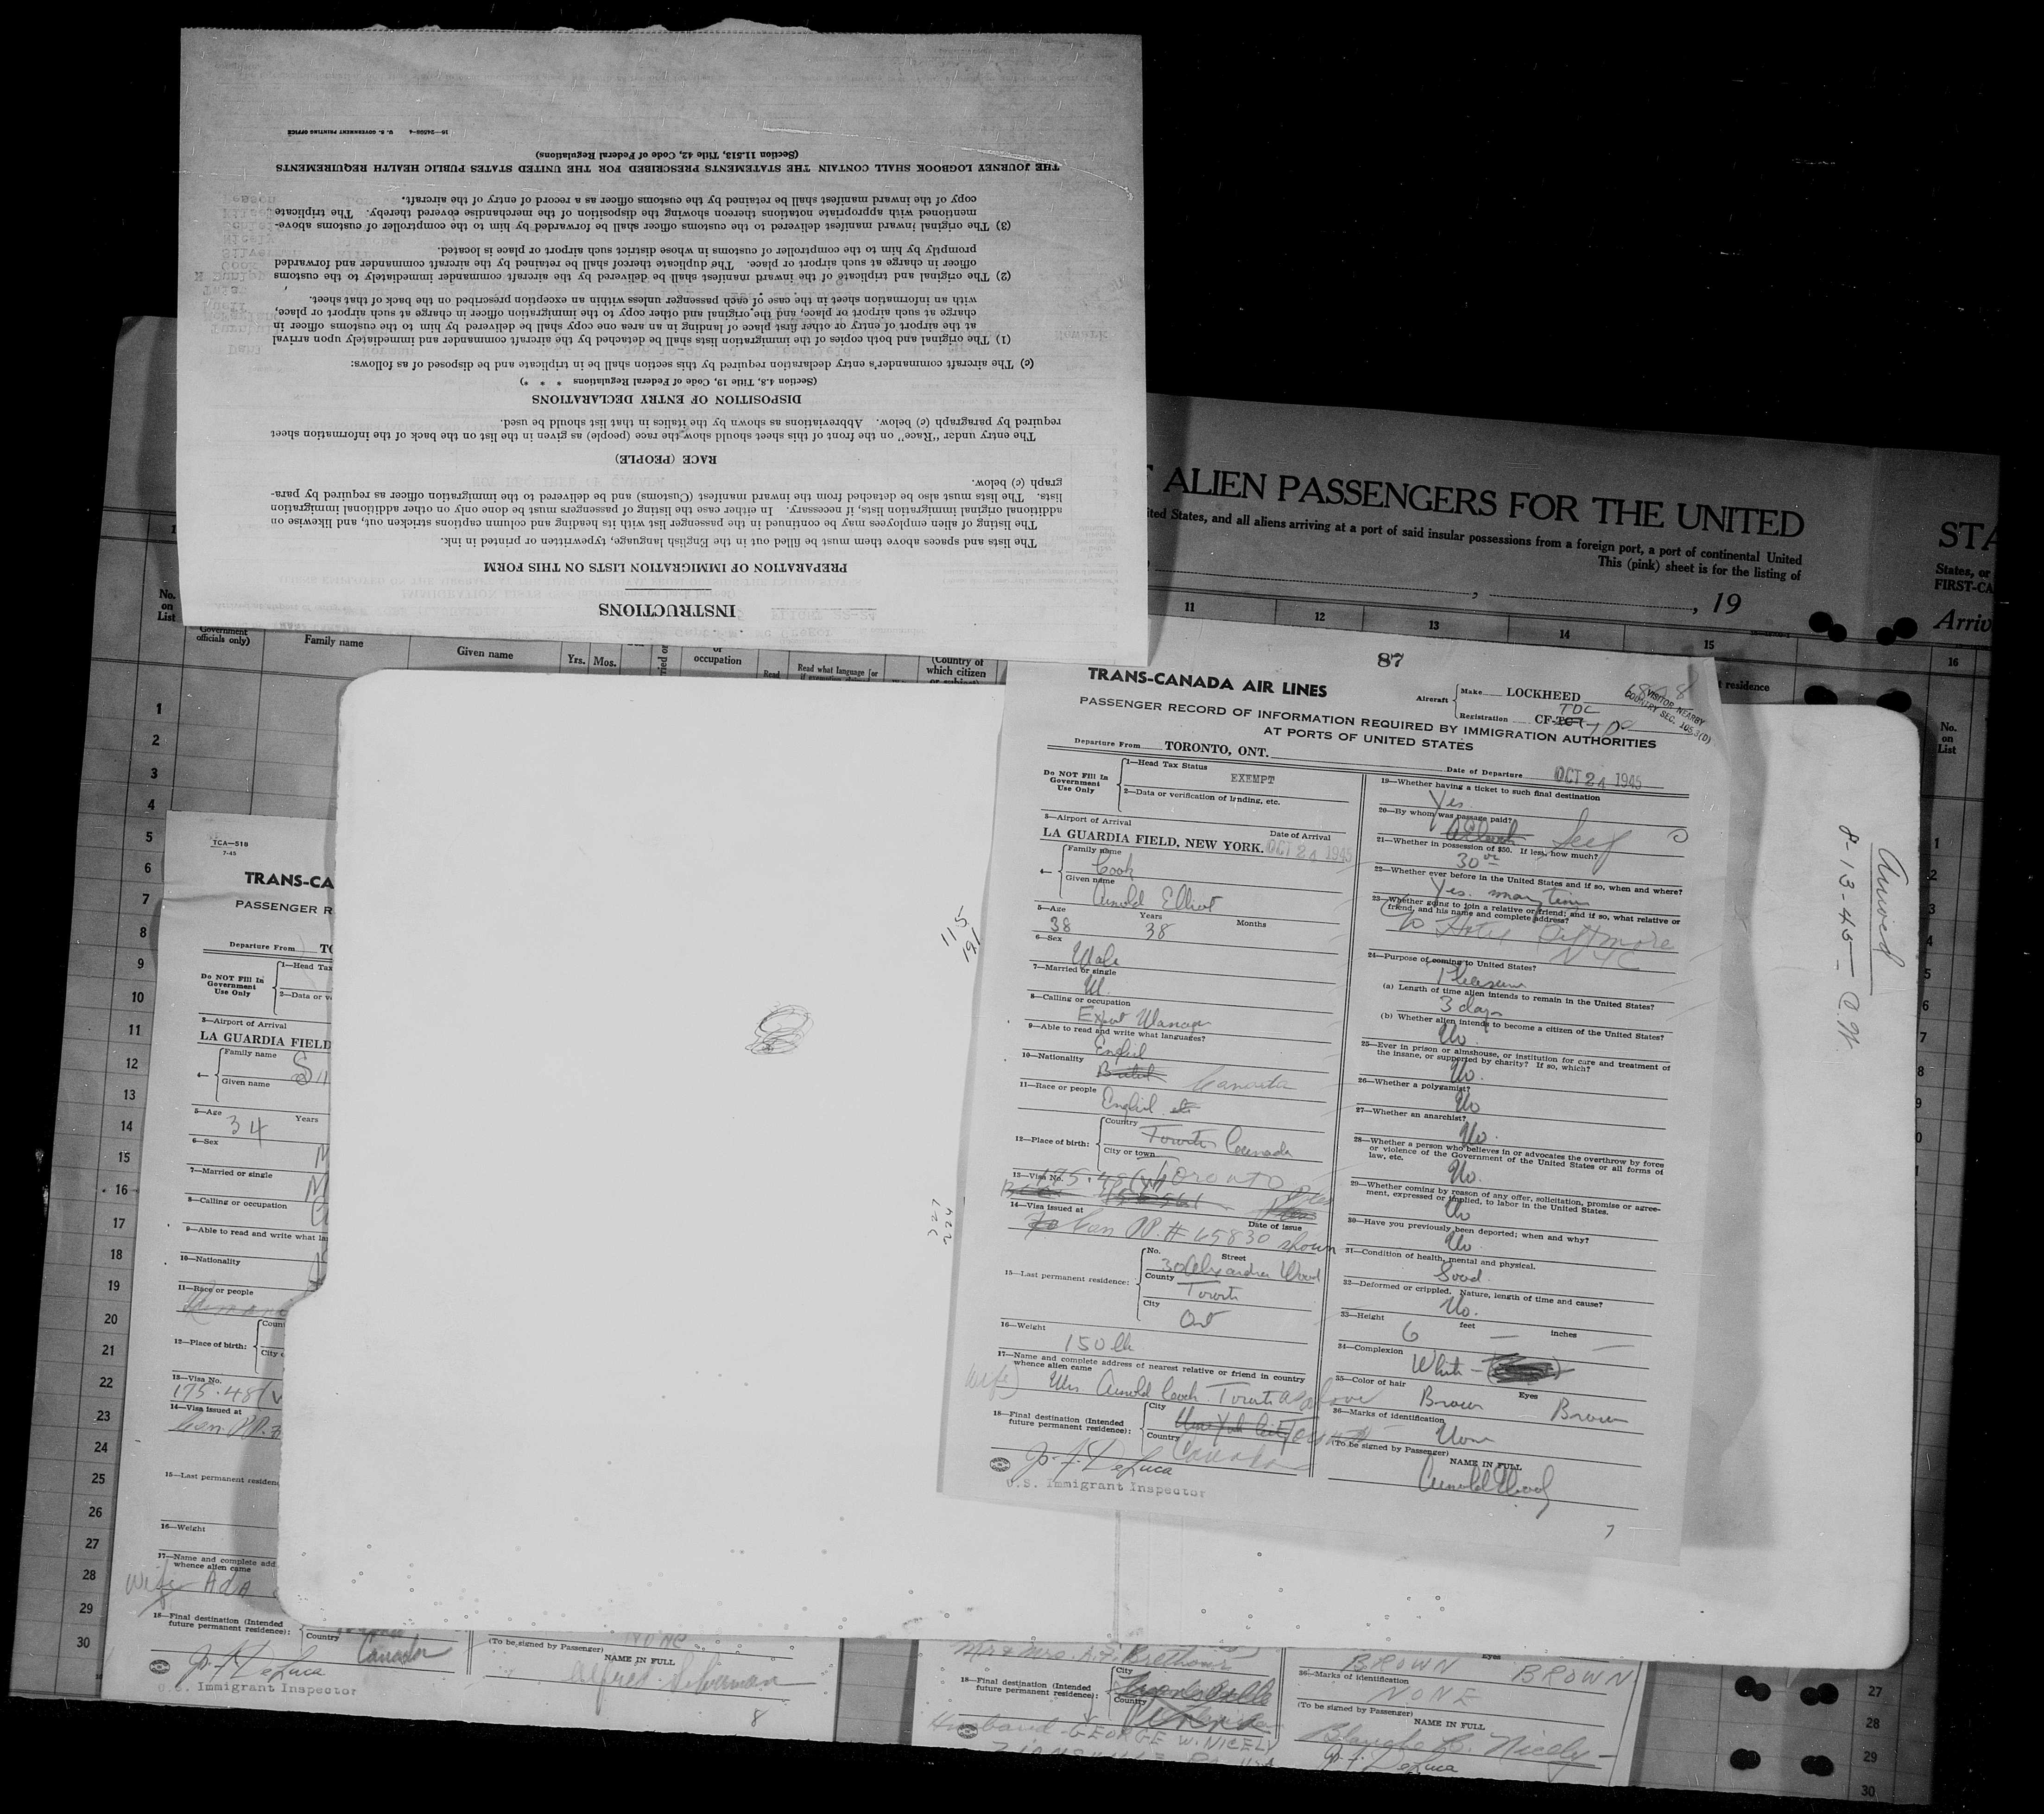 INSTRUCTIONS
PREPARATION OF IMMIGRATION LISTS ON THIS FORM
The lists and spaces above them must be filled out in the English language, typewritten or printed in ink.
The listing of alien employees may be continued in the passenger list with its heading and column captions stricken out, and likewise on
additional original immigration lists, if necessary. In either case the listing of passengers must be done only on other additional immigration
lists. The lists must also be detached from the inward manifest (Customs) and be delivered to the immigration officer as required by para-
graph (c) below.
RACE (PEOPLE)
The entry under "Race" on the front of this sheet should show the race (people) as given in the list on the back of the information sheet
required by paragraph (c) below. Abbreviations as shown by the italics in that list should be used.
DISPOSITION OF ENTRY DECLARATIONS
(Section 4.8, Title 19, Code of Federal Regulations * * *)
(c) The aircraft commander's entry declaration required by this section shall be in triplicate and be disposed of as follows:
(1) The original and both copies of the immigration lists shall be detached by the aircraft commander and immediately upon arrival
at the airport of entry or other first place of landing in an area one copy shall be delivered by him to the customs officer in
charge at such airport or place, and the original and other copy to the immigration officer in charge at such airport or place,
with an information sheet in the case of each passenger unless within an exception prescribed on the back of that sheet.
(2) The original and triplicate of the inward manifest shall be delivered by the aircraft commander immediately to the customs
officer in charge at such airport or place. The duplicate thereof shall be retained by the aircraft commander and forwarded
promptly by him to the comptroller of customs in whose district such airport or place is located.
(3) The original inward manifest delivered to the customs officer shall be forwarded by him to the comptroller of customs above-
mentioned with appropriate notations thereon showing the disposition of the merchandise covered thereby. The triplicate
copy of the inward manifest shall be retained by the customs officer as a record of entry of the aircraft.
THE JOURNEY LOGBOOK SHALL CONTAIN THE STATEMENTS PRESCRIBED FOR THE UNITED STATES PUBLIC HEALTH REQUIREMENTS
(Section 11.513, Title 42, Code of Federal Regulations)
16—24598-4 U. S. GOVERNMENT PRINTING OFFICE
ALIEN PASSENGERS FOR THE UNITED
ited States, and all aliens arriving at a port of said insular possessions from a foreign port, a port of continental United
This (pink) sheet is for the listing of
, 19
11 12 13 14 15
residence
STA
States, or
FIRST-CA
Arriv
16
No.
on
List
No.
on
List
Government
officials only)
Family name
Given name
Yrs. Mos.
or
occupation
Read
Read what language [or
(Country of
which citizen
or subject)
1
2
3
4
5
6
7
8
9
10
11
12
13
14
15
16
17
18
19
20
21
22
23
24
25
26
27
28
29
30
87
TRANS-CANADA AIR LINES
Aircraft Make LOCKHEED
Registration CF-TCT TDC
VISITOR NEARBY
COUNTRY SEC. 105.3(D)
PASSENGER RECORD OF INFORMATION REQUIRED BY IMMIGRATION AUTHORITIES
AT PORTS OF UNITED STATES
Departure From TORONTO, ONT.
Date of Departure OCT 24 1945
Do NOT Fill In
Government
Use Only
1—Head Tax Status
EXEMPT
2—Data or verification of landing, etc.
3—Airport of Arrival
Date of Arrival
LA GUARDIA FIELD, NEW YORK. OCT 24 1945
Family name
Cook
Given name
Arnold Elliot
5—Age Years Months
38 38
6—Sex
Male
7—Married or single
M.
8—Calling or occupation
Export Manager
9—Able to read and write what languages?
English
10—Nationality
British Canada
11—Race or people
English
12—Place of birth:
Country
Toronto Canada
City or town
Toronto
13—Visa No.
175.48(V)
14—Visa issued at Date of issue
Can PP. # 65830 shown
15—Last permanent residence:
No. Street
30 Alexandra Wood
County
Toronto
City
Ont
16—Weight
150 lb
17—Name and complete address of nearest relative or friend in country
whence alien came
Wife) Mrs Arnold Cook Toronto as above
18—Final destination (Intended
future permanent residence):
City
New York City Toronto
Country
Canada
Jo. F. DeLuca
U.S. Immigrant Inspector
19—Whether having a ticket to such final destination
Yes.
20—By whom was passage paid?
Self
21—Whether in possession of $50. If less, how much?
30
22—Whether ever before in the United States and if so, when and where?
Yes. many times
23—Whether going to join a relative or friend; and if so, what relative or
friend, and his name and complete address?
to Hotel Biltmore
NYC
24—Purpose of coming to United States?
Pleasure
(a) Length of time alien intends to remain in the United States?
3 days
(b) Whether alien intends to become a citizen of the United States?
No
25—Ever in prison or almshouse, or institution for care and treatment of
the insane, or supported by charity? If so, which?
No.
26—Whether a polygamist?
No
27—Whether an anarchist?
No.
28—Whether a person who believes in or advocates the overthrow by force
or violence of the Government of the United States or all forms of
law, etc.
No.
29—Whether coming by reason of any offer, solicitation, promise or agree-
ment, expressed or implied, to labor in the United States.
No
30—Have you previously been deported; when and why?
No
31—Condition of health, mental and physical.
Good.
32—Deformed or crippled. Nature, length of time and cause?
No.
33—Height
6 feet — inches
34—Complexion
White
35—Color of hair Eyes
Brown Brown
36—Marks of identification
None
(To be signed by Passenger)
NAME IN FULL
7
115
191
227
224
Arrived
8-13-45
TCA—518
7-45
TRANS-CA
PASSENGER R
Departure From TO
Do NOT Fill In
Government
Use Only
1—Head Tax
2—Data or v
3—Airport of Arrival
LA GUARDIA FIELD
Family name
Given name
5—Age Years
34
6—Sex
M
7—Married or single
M
8—Calling or occupation
9—Able to read and write what la
10—Nationality
11—Race or people
12—Place of birth:
Coun
City
13—Visa No.
175.48(V
14—Visa issued at
Can. PP.
15—Last permanent residenc
16—Weight
17—Name and complete add
whence alien came
Wife Ada
18—Final destination (Intended
future permanent residence):
Country
Canada
Jo. F. DeLuca
U.S. Immigrant Inspector
NONE
(To be signed by Passenger)
NAME IN FULL
Alfred Silverman
8
Mr & Mrs. A.F. Brethour
18—Final destination (Intended
future permanent residence):
City
Country
Husband - GEORGE W. NICELY
Eyes
BROWN BROWN
36—Marks of identification
NONE
(To be signed by Passenger)
NAME IN FULL
Blanche B. Nicely
Jo. F. DeLuca
27
28
29
30